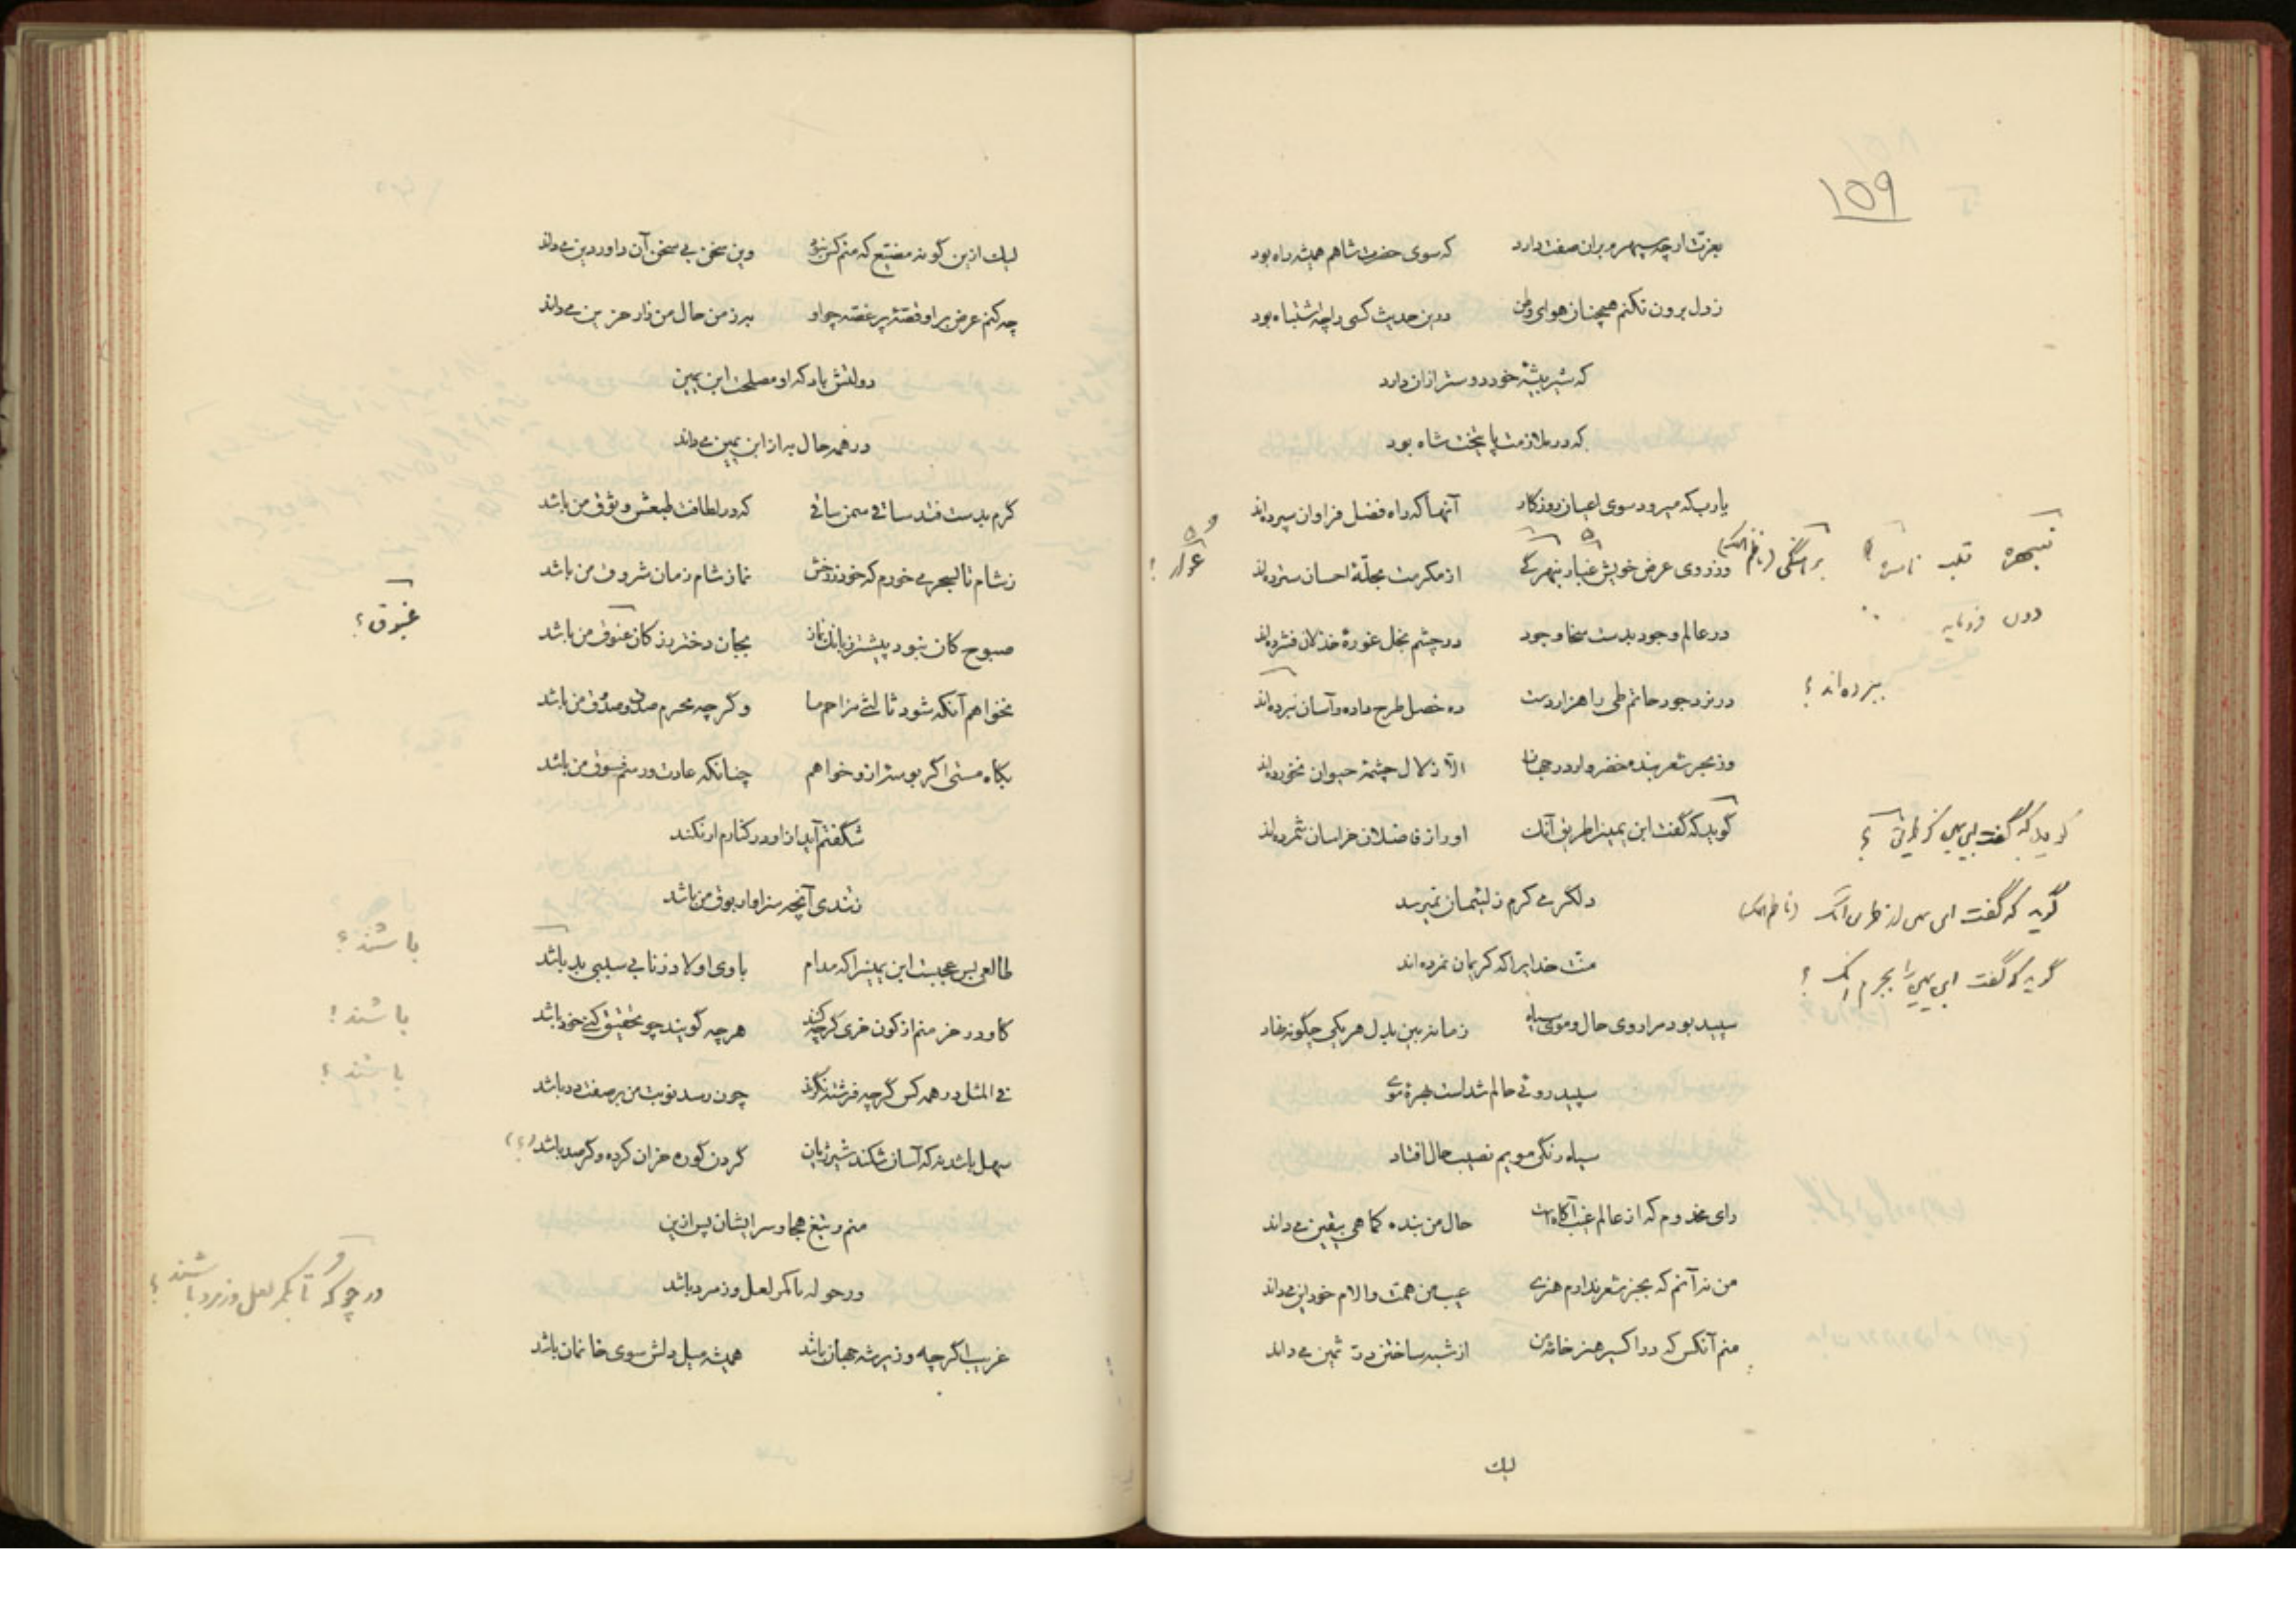 ۱۵۹
بعزت ارچه سپهرم بران صفت دارد که سوی حضرت شاهم همیشه راه بود
ز دل برون نکنم همچنان هوای وطن درین حدیث کسی را چه اشتباه بود
که شیر بیشهٔ خود دوستر ازان دارد
که در ملازمت پایتخت شاه بود
یارب که میرود سوی اعیان روزگار آنها که راه فضل فراوان سپرده‌اند
وز روی عرض خویش غبار از مکرمت بمجلهٔ احسان سترده‌اند
در عالم وجود بدست سخا و جود در چشم بخل غورهٔ خذلان فشرده‌اند
در نرد جود حاتم طی را هزار دست ده خصل طرح داده و آسان نبرده‌اند
وز بحر شعر بنده خضروار در جهان الا زلال چشمهٔ حیوان نخورده‌اند
گوید که گفت ابن یمین را طریق آنک او را ز فاضلان خراسان شمرده‌اند
دل گر می کرم ز لئیمان نمیرسد
منت خدایرا که کریمان نمرده‌اند
سپید بود مرا روی حال و موی سیاه زمانه بین بدل هر یکی چگونه نهاد
سپید روئی حالم شدست بهرهٔ موی
سیاه رنگی مویم نصیب حال افتاد
رای مخدوم که از عالم غیب آگاهست حال من بنده کما هی بیقین می‌داند
من نه آنم که بجز شعر ندارم هنری عیب من همت والام خود این می‌داند
منم آنکس که در اکسیر هنر خاطر من از شبه ساختن در ثمین می‌داند
لیک
نبهره قلب ناسره
دون فرومایه
ببرده‌اند ؟
گوید که گفت ابن یمین ؟
گوید که گفت ابن یمین از طریق آنک
گوید که گفت ابن یمین را بجرم آنک ؟
لیک ازین گونه مضیع که منم کس نبود وین سخن بی سخن آن داور دین می‌داند
چه کنم عرض بر او قصهٔ پر غصه چو او به ز من حال من زار حزین می‌داند
دولتش باد که او مصلحت ابن یمین
در همه حال به از ابن یمین می‌داند
گرم بدست فتد ساقی سمن ساقی که در لطافت طبعش وثوق من باشد
ز شام تا بسحر می خورم که خور ز رخش نماز شام زمان شروق من باشد
صبوح کان نبود پیشتر ز بانگ نماز بجان دختر رز کان غبوق من باشد
نخواهم آنکه شود ثالثی مزاحم ما وگرچه محرم صدق و صدوق من باشد
بگاه مستی اگر بوسه زو خواهم چنانکه عادت و رسم فسوق من باشد
شگفتم آید ازو در کنارم ار نکند
ز تندی آنچه سزاوار بوق من باشد
طالعی بس عجبست ابن یمین را که مدام با وی اولاد زنا بی سببی بد باشد
کاو در خرمنم از کون خری گرچه کنند هر چه گویند چو تحقیق کنی خود باشد
فی المثل در همه کس گرچه فرشته نگرند چون رسد نوبت من بر صفت دد باشد
سهل باشد نه که آسان شکند شیر ژیان گردن گوره خران گرده و گر صد باشد (؟)
منم و تیغ هجا و سر ایشان پس ازین
ور حوله با کمر لعل و زمرد باشد
غریب اگرچه وزیر شه جهان باشد همیشه میل دلش سوی خانمان باشد
غبوق ؟
باشند ؟
باشند !
باشند ؟